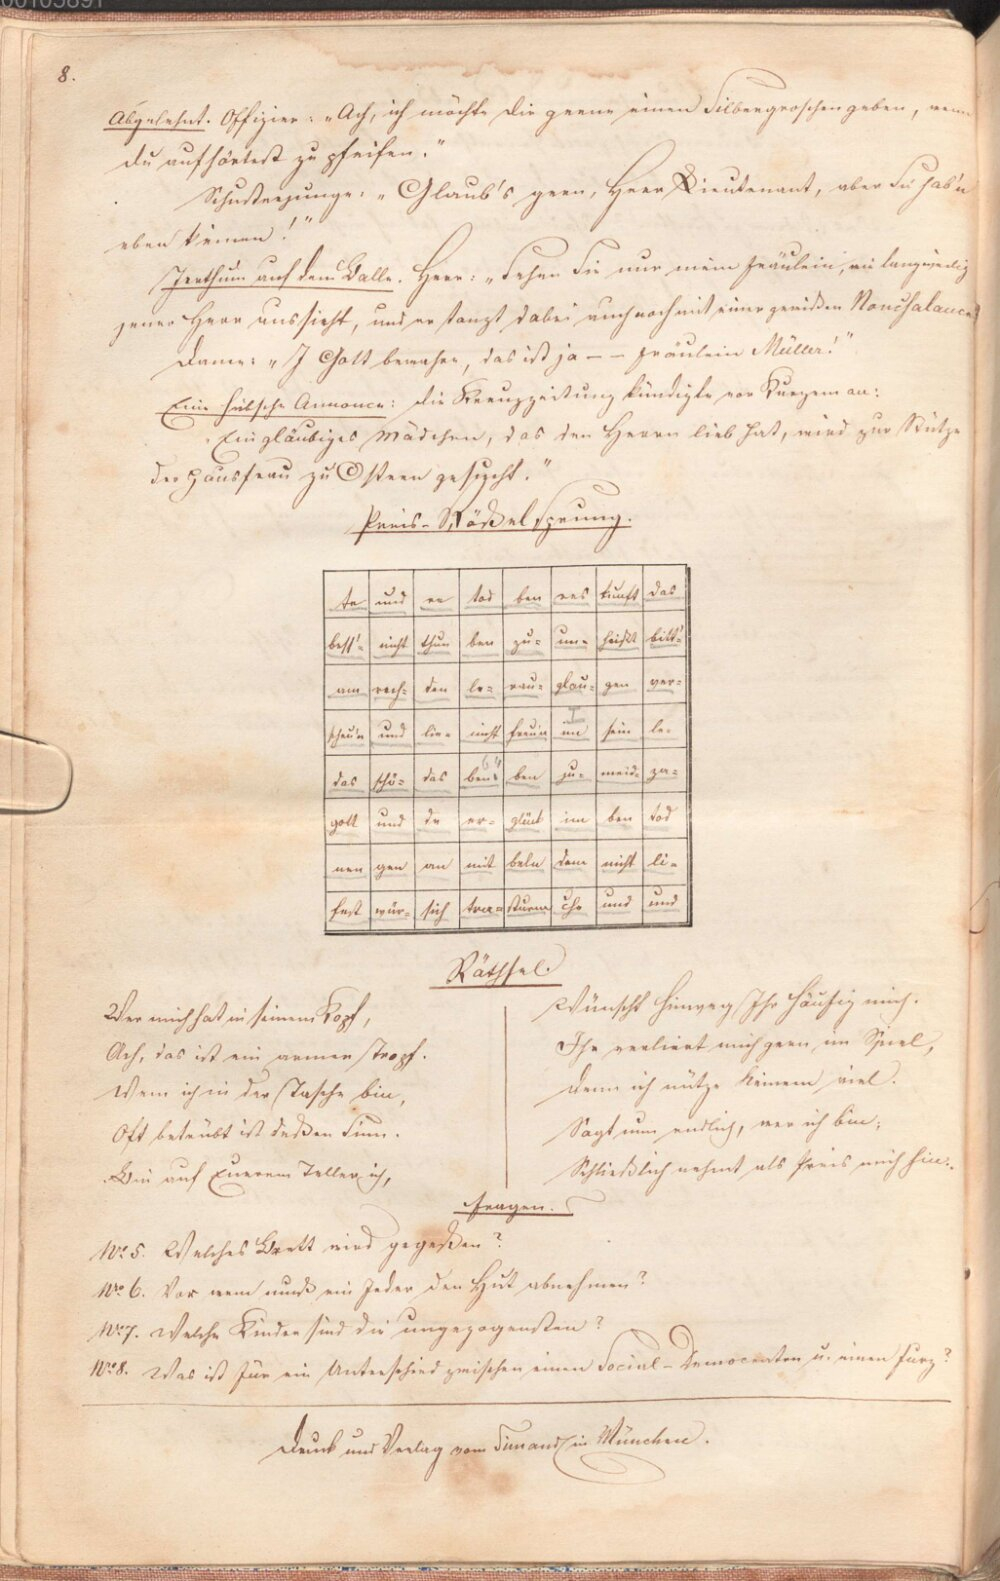 00105891
8.
Abgelehnt. Offizier: „Ach, ich möchte dir gerne einen Silbergroschen geben, wenn
du aufhörtest zu pfeifen."
Schusterjunge: „Glaub's gern, Herr Lieutenant, aber Sie hab'n
eben keinen!"
Irrthum auf dem Balle. Herr: „Sehen Sie nur mein Fräulein, wie langweilig
jener Herr aussieht, und er tanzt dabei auch noch mit einer gewissen Nonchalance."
Dame: „I Gott bewahre, das ist ja – – Fräulein Müller!"
Eine hübsche Annonce: die Kreuzzeitung kündigte vor Kurzem an:
„Ein gläubiges Mädchen, das den Herrn lieb hat, wird zur Stütze
der Hausfrau zu Ostern gesucht."
Preis-Rößelsprung.
te und en tod ben res kunft das
bess'= nicht thun ben zu= un= heißt bitt'=
am rech= den le= rau= glau= gen ver=
scheu'n und lie= nicht freu'n im sein le=
das schö= das ben ben zu= meid= za=
gott und de er= glück im ben tod
nen gen an mit beln dem nicht li=
fest wür= sich tra= sturm Uhr und und
Räthsel.
Wer mich hat in seinem Kopf,
Ach, das ist ein armer Tropf.
Wem ich in der Tasche bin,
Oft betrübt ist dessen Sinn.
Bin auf Eurem Teller ich,
Wünscht hinweg Ihr häufig mich.
Ihr verliert mich gern im Spiel,
Denn ich nütze keinem viel.
Sagt nun endlich, wer ich bin;
Schließlich nehmt als Preis mich hin.
Fragen.
No. 5. Welches Brett wird gegessen?
Nro 6. Vor wem muß ein Jeder den Hut abnehmen?
No. 7. Welche Kinder sind die ungezogensten?
Nro 8. Was ist für ein Unterschied zwischen einen Social-Democraten u. einen Furz?
Druck und Verlag vom in München.